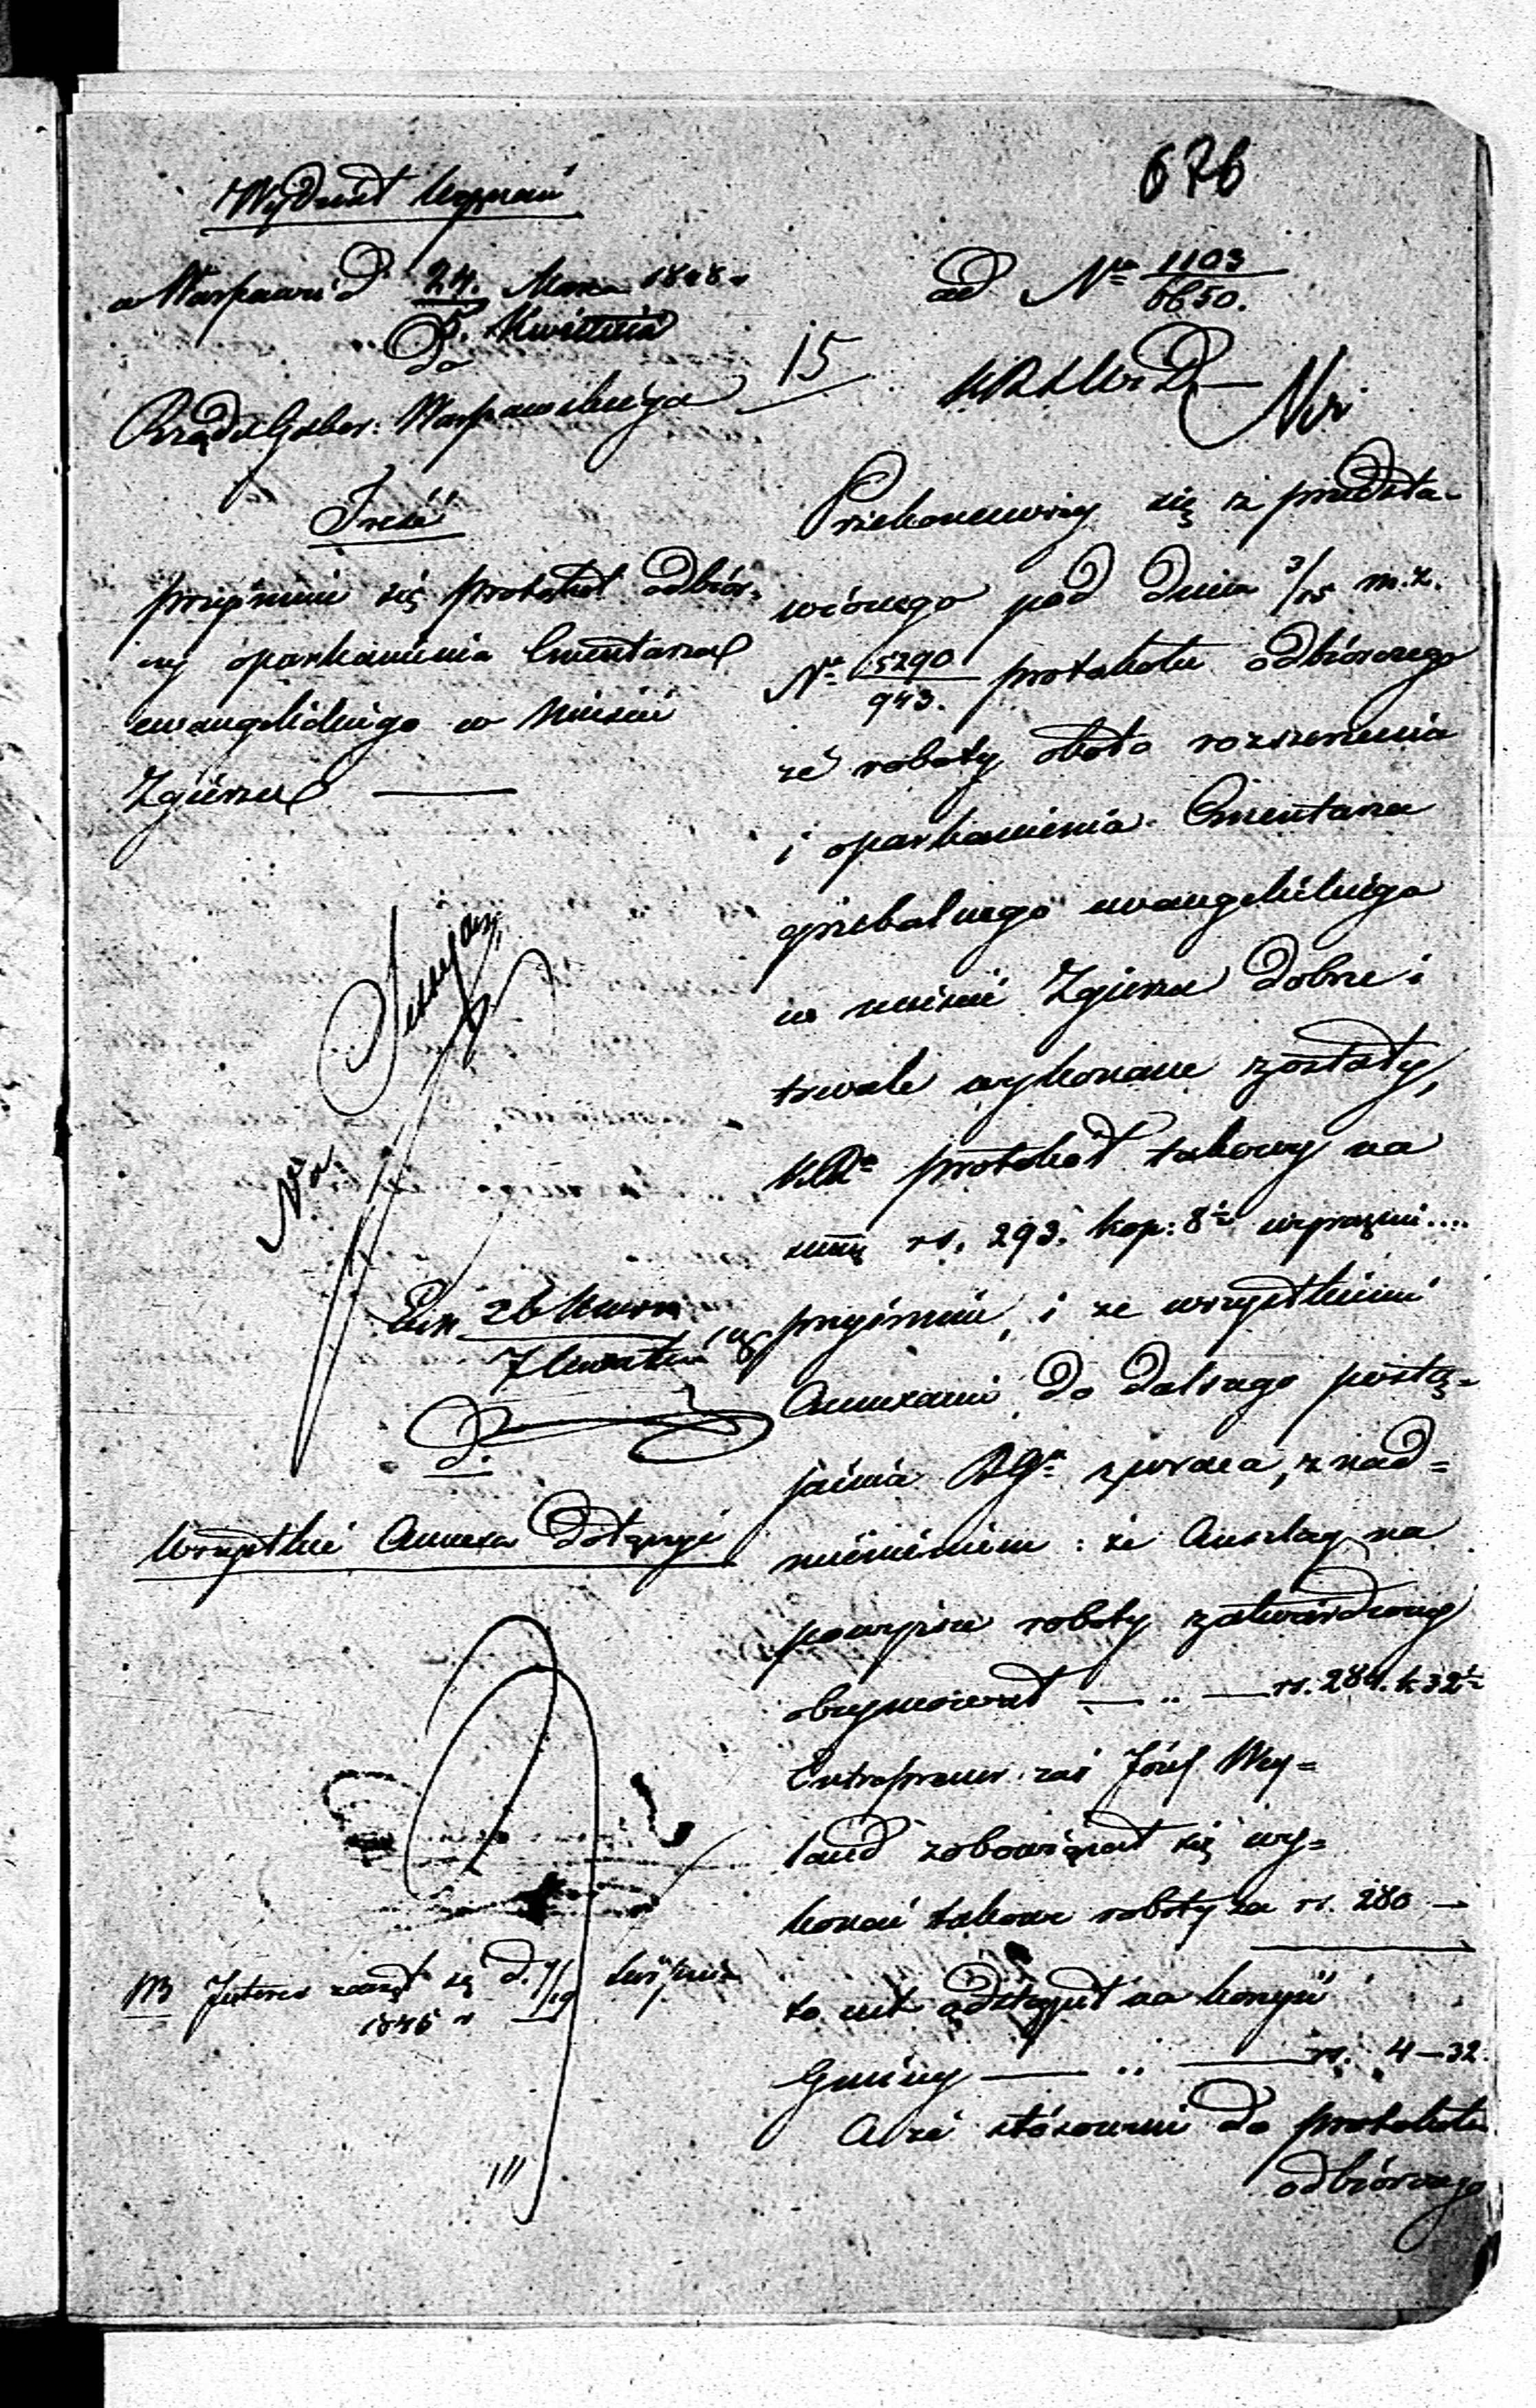 676
Wydział Wyznań
w Warszawie d 24. Marca 1848 r
5. Kwietnia
Do
Rządu Guber: Warszawskiego
15
Treść
przyjmuie się protokół odbior-
czy oparkanienia Cmentarza
ewangelickiego w Mieście
Zgierzu
Dnia 26 Marca
7 Kwietnia
Wszystkie Annexa Dołączyć
NB Interes zaczął się d. 7/19 Kwietnia
1846 r
ad No 1103
6650.
Przekonawszy się z przedsta-
wionego pod dniem 3/15 m. z.
No 5290
943. protokołu odbiorczego
że roboty około rozszerzenia
i oparkanienia Cmentarza
grzebalnego ewangelickiego
w mieście Zgierzu dobrze i
trwale wykonane zostały,
protokół takowy na
summę rs. 293. kop: 8½
przyjmuie, i ze wszystkiemi
Annexami do dalszego postą-
pienia RGu zwraca, z nad-
mienieniem: że Anszlag na
powyższe roboty zatwierdzony
obejmował — „ — rs. 284. k 32½
Entreprener zaś Józef Wey-
land zobowiązał się wy-
konać takowe roboty za rs. 280 —
to iest odstąpił na korzyść
Gminy — „ — rs. 4 — 32
A że stósownie do protokołu
odbiorczego